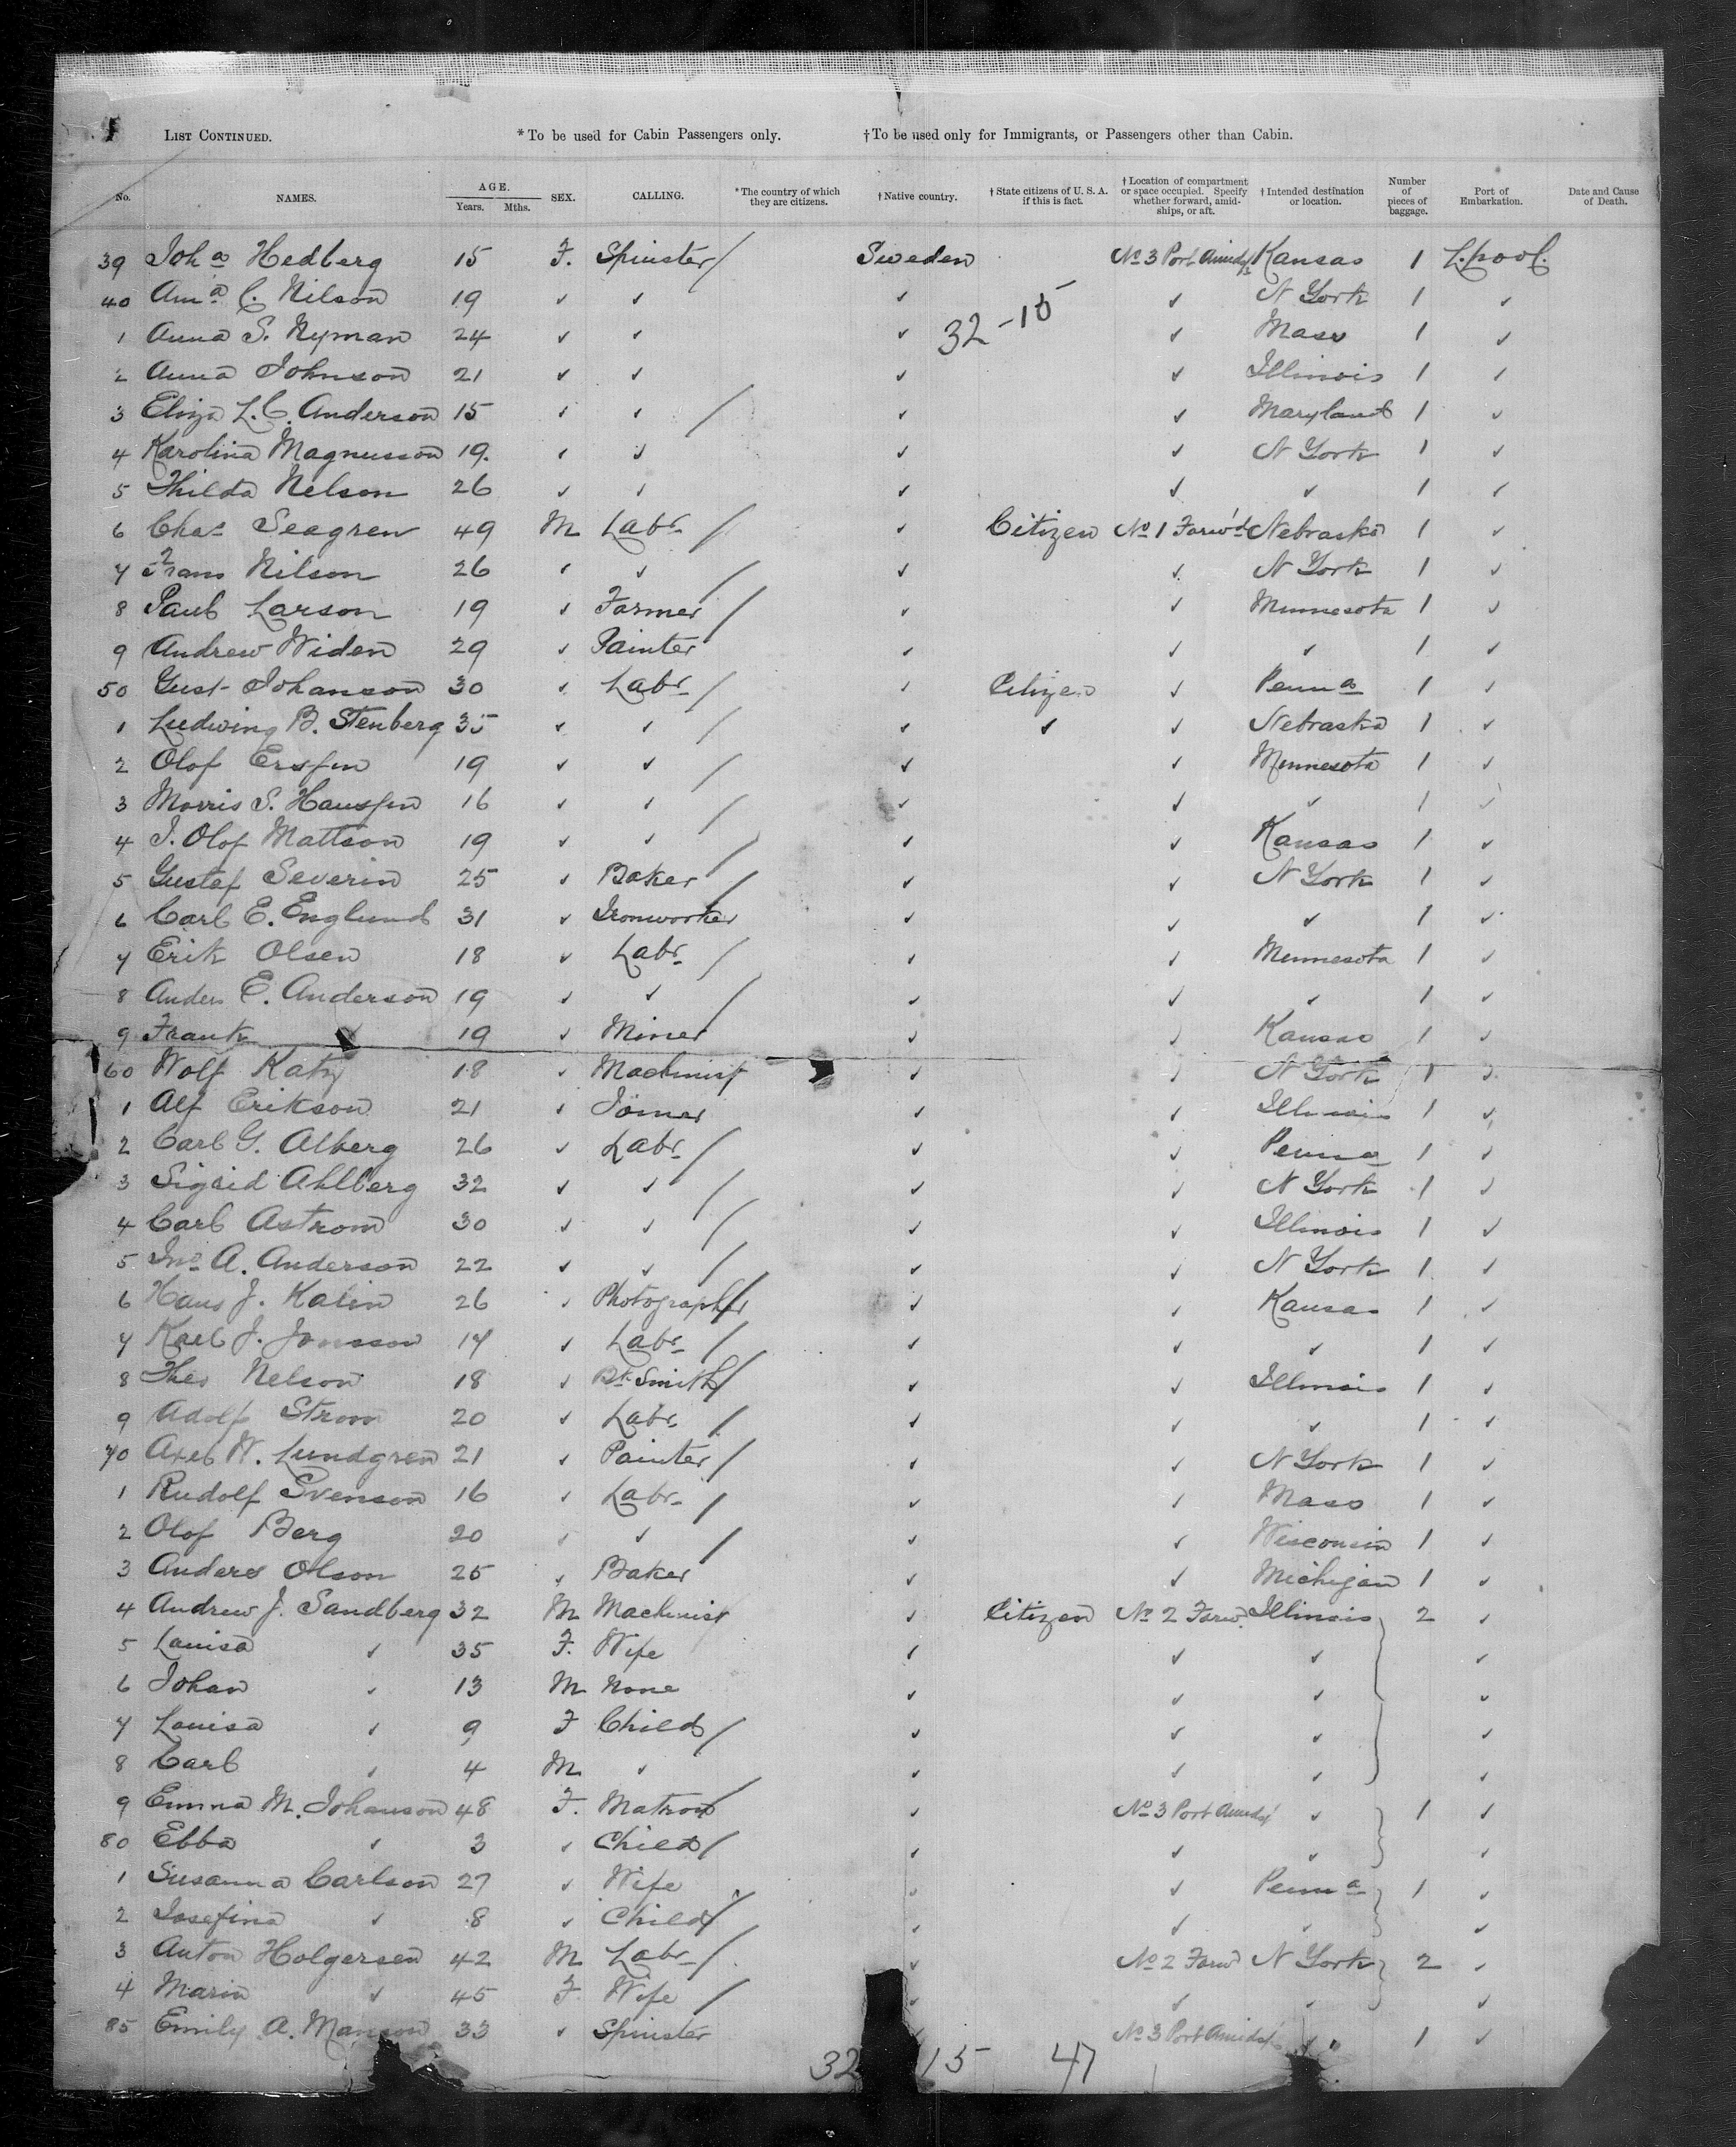 LIST CONTINUED. *To be used for Cabin Passengers only. †To be used only for Immigrants, or Passengers other than Cabin.
No. NAMES. AGE. Years. Mths. SEX. CALLING. *The country of which they are citizens. †Native country. †State citizens of U. S. A. if this is fact. †Location of compartment or space occupied. Specify whether forward, amidships, or aft. †Intended destination or location. Number of pieces of baggage. Port of Embarkation. Date and Cause of Death.
39 Joha Hedberg 15 F. Spinster / Sweden No 3 Port Amids Kansas 1 L.pool.
40 Ama C. Nilson 19 ✓ ✓ ✓ ✓ N York 1 ✓
32-15
1 Anna S. Nyman 24 ✓ ✓ ✓ ✓ Mass 1 ✓
2 Anna Johnson 21 ✓ ✓ ✓ ✓ Illinois 1 ✓
3 Eliza L. C. Anderson 15 ✓ ✓ / ✓ ✓ Maryland 1 ✓
4 Karolina Magnusson 19. ✓ ✓ ✓ ✓ N York 1 ✓
5 Thilda Nelson 26 ✓ ✓ ✓ ✓ ✓ 1 ✓
6 Chas Seagren 49 M Labr / ✓ Citizen No 1 Forw'd Nebraska 1 ✓
7 Frans Nilson 26 ✓ ✓ / ✓ ✓ N York 1 ✓
8 Paul Larson 19 ✓ Farmer / ✓ Minnesota 1 ✓
9 Andrew Widen 29 ✓ Painter ✓ ✓ ✓ 1 ✓
50 Gust Johanson 30 ✓ Labr / ✓ Citizen ✓ Penna 1 ✓
1 Ludwing B. Stenberg 35 ✓ ✓ / ✓ ✓ ✓ Nebraska 1 ✓
2 Olof 19 ✓ ✓ / ✓ ✓ Minnesota 1 ✓
3 Morris S. 16 ✓ ✓ / ✓ ✓ ✓ 1 ✓
4 J. Olof Mattson 19 ✓ ✓ / ✓ ✓ Kansas 1 ✓
5 Gustaf Severin 25 ✓ Baker / ✓ ✓ N York 1 ✓
6 Carl E. Englund 31 ✓ Ironworker ✓ ✓ ✓ 1 ✓
7 Erik Olsen 18 ✓ Labr / ✓ ✓ Minnesota 1 ✓
8 Anders E. Anderson 19 ✓ ✓ / ✓ ✓ ✓ 1 ✓
9 Frank ✓ 19 ✓ Miner ✓ ✓ Kansas 1 ✓
60 Wolf Katz 18 ✓ Machinist ✓ ✓ N York 1 ✓
1 Alf Erikson 21 ✓ Joiner ✓ ✓ Illinois 1 ✓
2 Carl G. Alberg 26 ✓ Labr / ✓ ✓ Penna 1 ✓
3 Sigrid Ahlberg 32 ✓ ✓ / ✓ ✓ N York 1 ✓
4 Carl Astrom 30 ✓ ✓ / ✓ ✓ Illinois 1 ✓
5 Jno A. Anderson 22 ✓ ✓ / ✓ ✓ N York 1 ✓
6 Hans J. Malin 26 ✓ Photographer / ✓ ✓ Kansas 1 ✓
7 Karl J. Jonsson 17 ✓ Labr / ✓ ✓ ✓ 1 ✓
8 Theo Nelson 18 ✓ Bk Smith / ✓ ✓ Illinois 1 ✓
9 Adolf Strom 20 ✓ Labr / ✓ ✓ ✓ 1 ✓
70 Axel W. Lundgren 21 ✓ Painter / ✓ ✓ N York 1 ✓
1 Rudolf Svenson 16 ✓ Labr / ✓ ✓ Mass 1 ✓
2 Olof Berg 20 ✓ ✓ / ✓ ✓ Wisconsin 1 ✓
3 Anders Olson 25 ✓ Baker ✓ ✓ Michigan 1 ✓
4 Andrew J. Sandberg 32 M Machinist ✓ Citizen No 2 Forwd Illinois 2 ✓
5 Louisa ✓ 35 F. Wife ✓ ✓ ✓ ✓
6 Johan ✓ 13 M None ✓ ✓ ✓ ✓
7 Louisa ✓ 9 F Child / ✓ ✓ ✓ ✓
8 Carl ✓ 4 M ✓ ✓ ✓ ✓ ✓
9 Emma M. Johanson 48 F. Matron / ✓ No 3 Port Amids ✓ 1 ✓
80 Ebba ✓ 3 ✓ Child / ✓ ✓ ✓ ✓
1 Susanna Carlson 27 ✓ Wife ✓ ✓ Penna 1 ✓
2 Josefina ✓ 8 ✓ Child / ✓ ✓ ✓ ✓
3 Anton Holgersen 42 M Labr / ✓ No 2 Forwd N York 2 ✓
4 Maria ✓ 45 F. Wife / ✓ ✓ ✓ ✓
85 Emily A. Manson 33 ✓ Spinster No 3 Port Amids ✓ 1 ✓
32 15 47